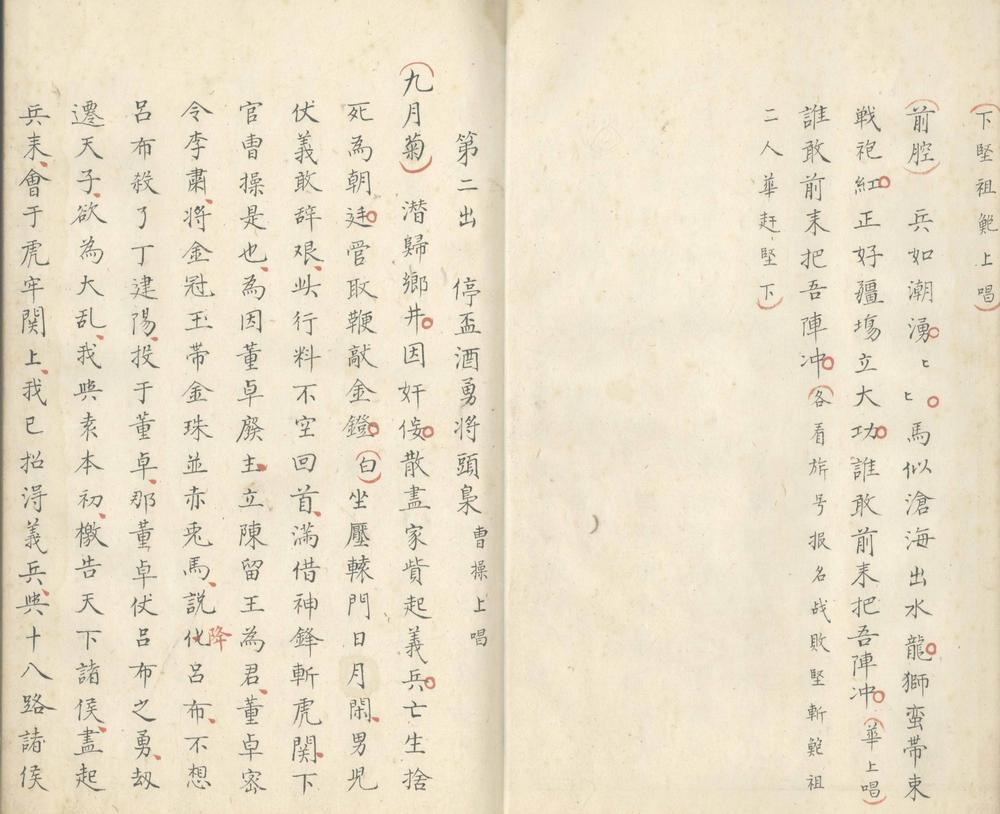 下堅祖範上唱
前腔 兵如潮湧〻〻馬似滄海出水龍獅蛮帶束
戦袍紅正好疆塲立大功誰敢前来把吾陣冲華上唱
誰敢前来把吾陣冲各看旂号报名战敗堅斬範祖
二人華赶堅下
第二出 停盃酒勇将頭梟曹操上唱
九月菊 潜歸鄉井因奸佞散盡家貲起義兵亡生捨
死為朝廷管取鞭敲金鐙白坐壓轅門日月閑男児
伏義敢辞艰此行料不空回首滿借神鋒斬虎関下
官曹操是也為因董卓廢主立陳留王為君董卓密
令李肅将金冠玉带金珠並赤兎馬說化降吕布不想
吕布殺了丁建陽投于董卓那董卓仗吕布之勇刼
遷天子欲為大乱我與袁本初檄告天下諸侯盡起
兵来會于虎牢関上我已招淂義兵與十八路諸侯